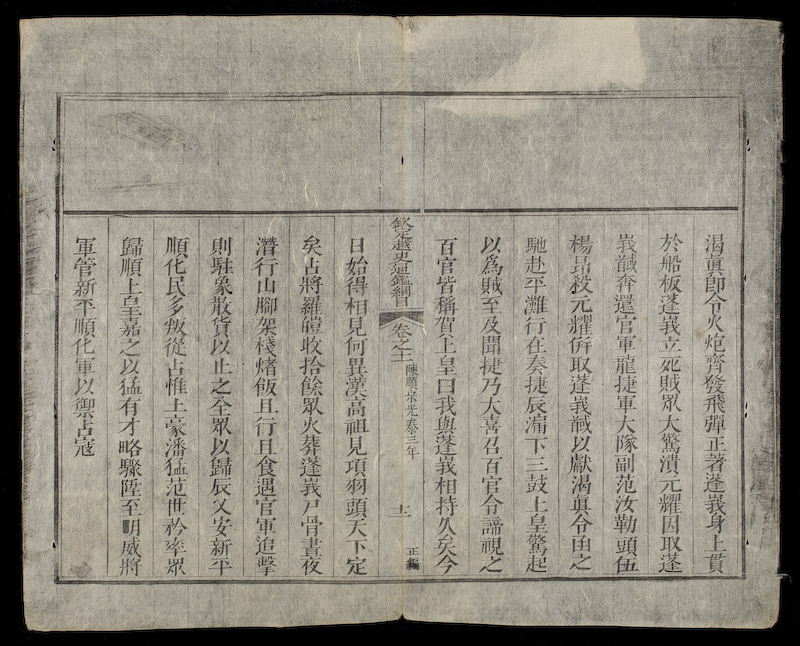 渴眞卽令火炮齊發飛彈正著蓬峩身上貫
於船板蓬峩立死賊眾大驚潰元耀因取蓬
峩馘奔還官軍龍捷軍大隊副范汝勒頭伍
楊昂殺元耀倂取蓬峩馘以獻渴眞令凾之
馳赴平灘行在奏捷辰漏下三鼓上皇驚起
以爲賊至及聞捷乃大喜召百官令諦視之
百官皆稱賀上皇曰我與蓬峩相持久矣今
欽定越史通鑑綱目 卷之十一 陳順宗光泰三年 十二 正編
日始得相見何異漢高祖見項羽頭天下定
矣占將羅皚收拾餘眾火葬蓬峩尸骨晝夜
潛行山腳架棧烤飯且行且食遇官軍追擊
則駐象散貨以止之全眾以歸辰乂安新平
順化民多叛從占惟土豪潘猛范世衿率眾
歸順上皇嘉之以猛有才略驟陞至明威將
軍管新平順化軍以禦占寇